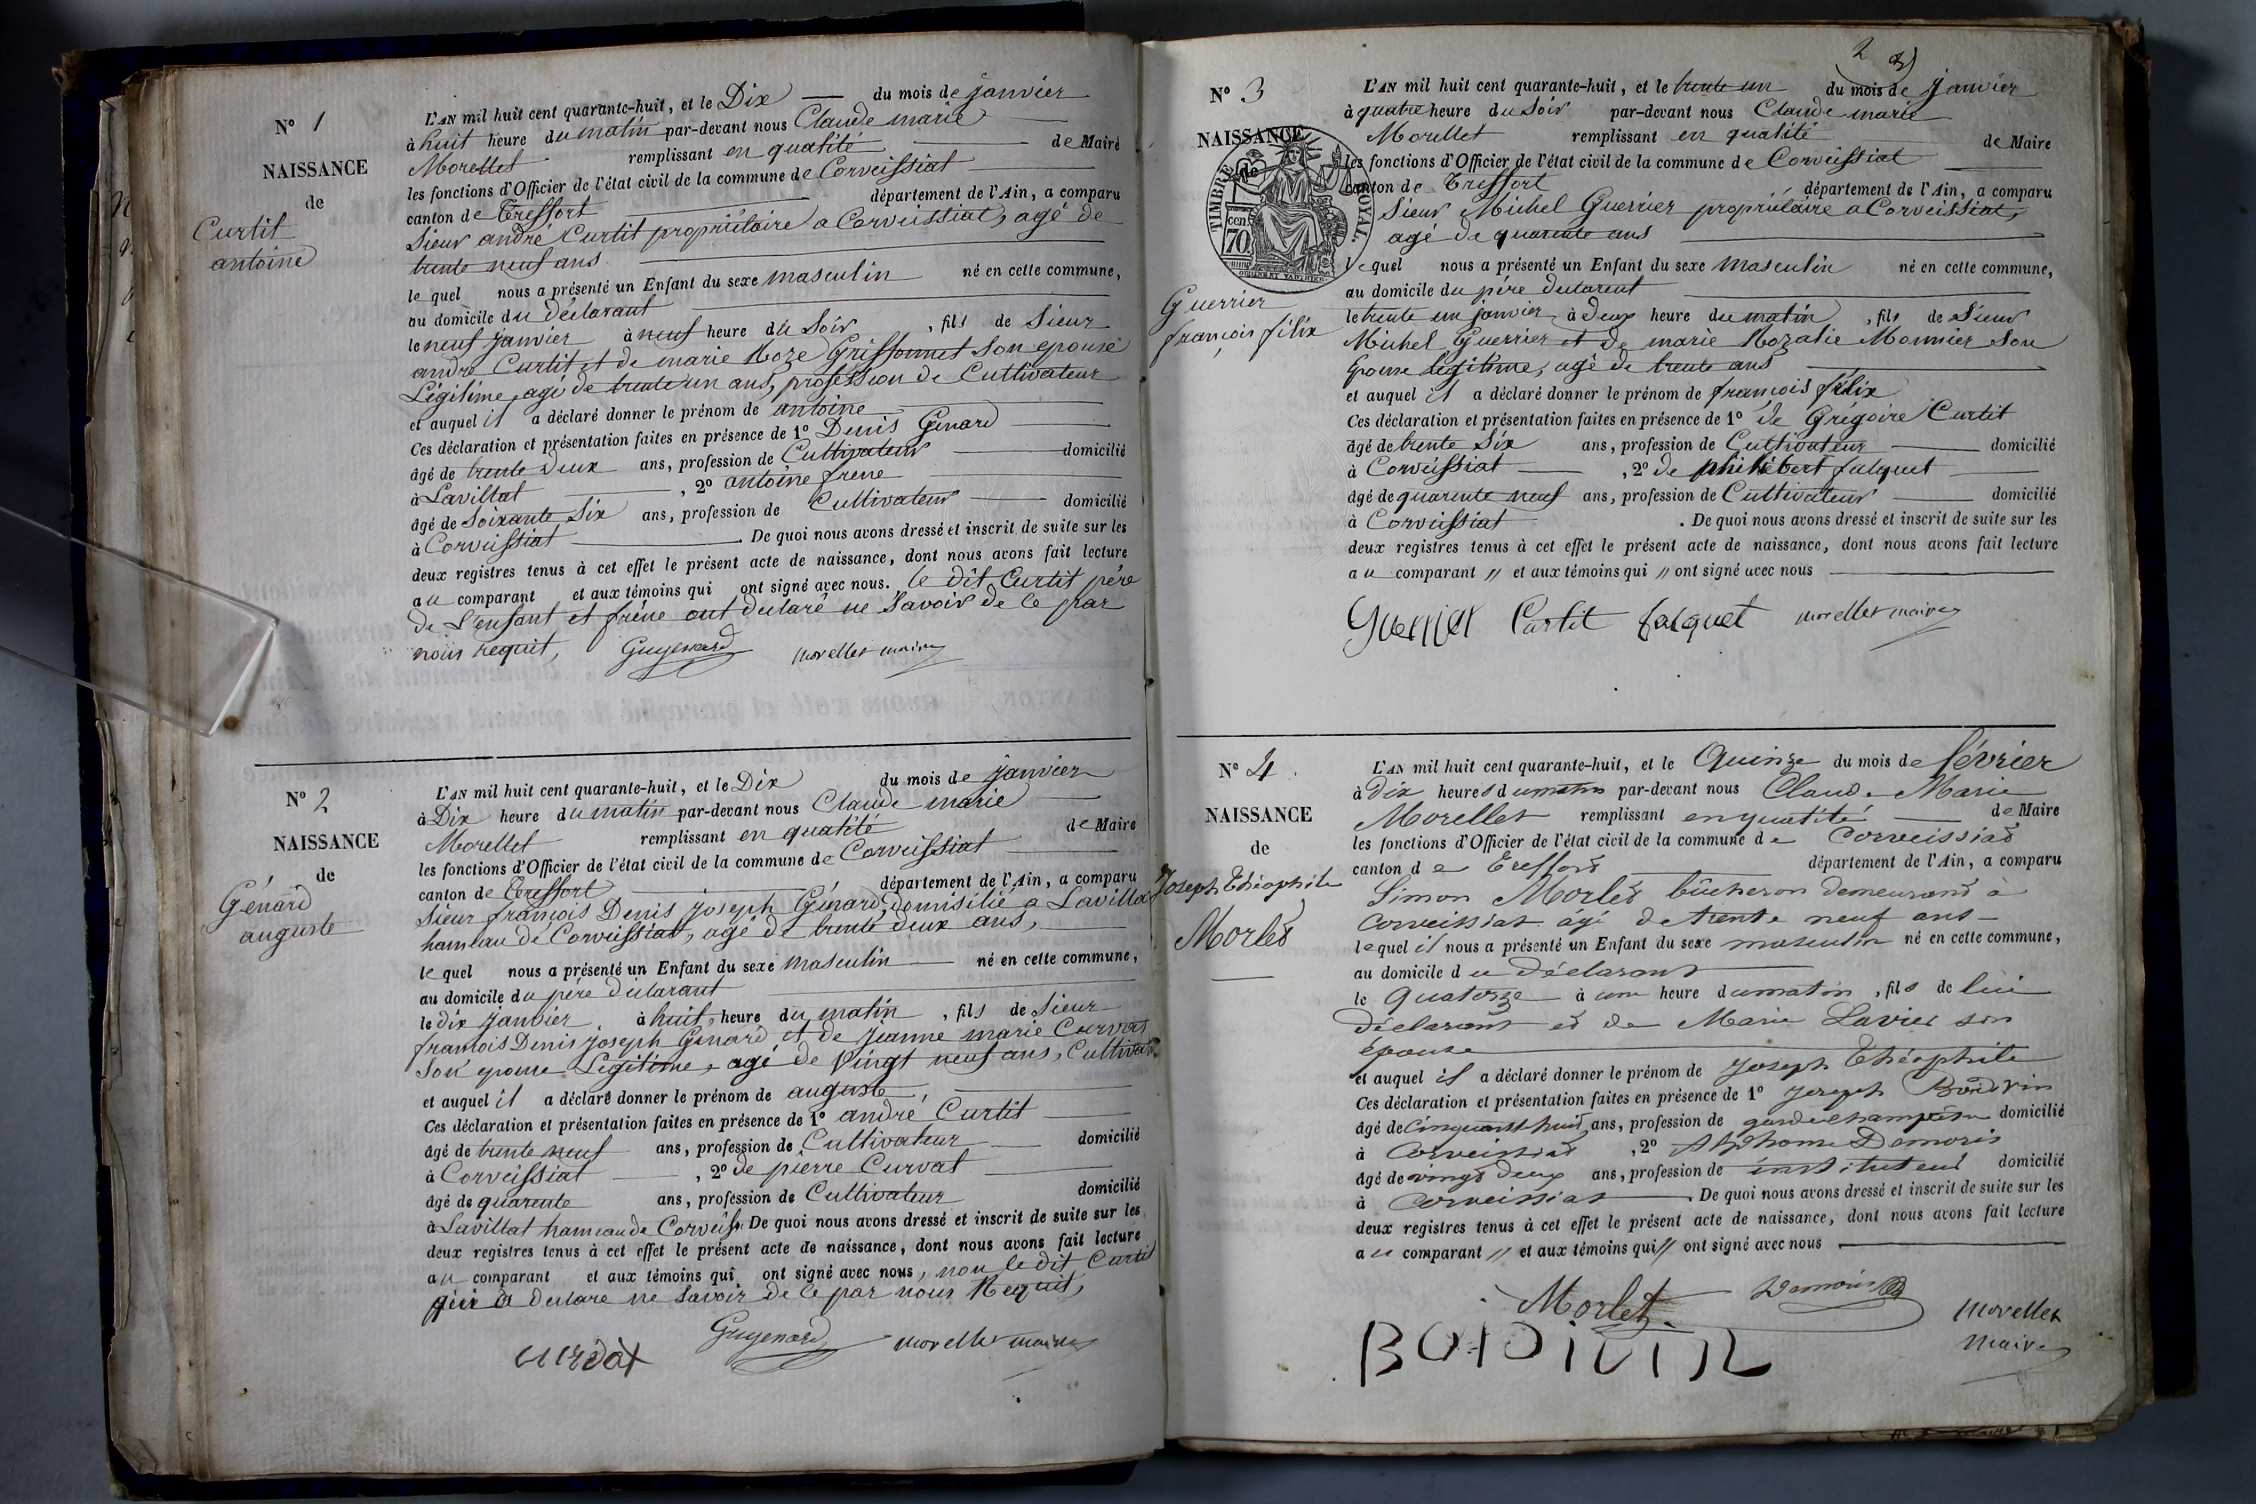 N° 1
NAISSANCE
de
Curtit
antoine
L'AN mil huit cent quarante-huit, et le Dix du mois de janvier
à huit heure du matin par-devant nous Claude marie
Morellet remplissant en qualité de Maire
les fonctions d'Officier de l'état civil de la commune de Corveissiat
canton de Treffort département de l'Ain, a comparu
Sieur andré Curtit propriétaire a Corveissiat, agé de
trente neuf ans
le quel nous a présenté un Enfant du sexe masculin né en cette commune,
au domicile du déclarant
le neuf janvier à neuf heure du Soir, fils de Sieur
andré Curtit et de marie Roze Griffonnet son epouse
Légitime, agé de trente un ans, profession de Cultivateur
et auquel il a déclaré donner le prénom de antoine
Ces déclaration et présentation faites en présence de 1° Denis Génard
âgé de trente deux ans, profession de Cultivateur domicilié
à Lavillat, 2° antoine frene
âgé de Soixante Six ans, profession de Cultivateur domicilié
à Corveissiat. De quoi nous avons dressé et inscrit de suite sur les
deux registres tenus à cet effet le présent acte de naissance, dont nous avons fait lecture
au comparant et aux témoins qui ont signé avec nous. le dit Curtit père
de l'enfant et frene ont declaré ne Savoir de ce par
nous requit,
Guyenard morellet maire
N° 2
NAISSANCE
de
Génard
auguste
L'AN mil huit cent quarante-huit, et le Dix du mois de janvier
à Dix heure du matin par-devant nous Claude marie
Morellet remplissant en qualité de Maire
les fonctions d'Officier de l'état civil de la commune de Corveissiat
canton de Treffort département de l'Ain, a comparu
Sieur françois Denis joseph Génard, domisilié a Lavillat
hameau de Corveissiat, agé de trente deux ans,
le quel nous a présenté un Enfant du sexe masculin né en cette commune,
au domicile du père declarant
le dix janvier, à huit heure du matin, fils de Sieur
francois Denis joseph Génard et de jeanne marie
Son epouse Légitime, agé de Vingt neuf ans,
et auquel il a déclaré donner le prénom de auguste
Ces déclaration et présentation faites en présence de 1° andré Curtit
âgé de trente neuf ans, profession de Cultivateur domicilié
à Corveissiat, 2° de pierre Curvat
âgé de quarente ans, profession de Cultivateur domicilié
à Lavillat hameau de Corveiss. De quoi nous avons dressé et inscrit de suite sur les
deux registres tenus à cet effet le présent acte de naissance, dont nous avons fait lecture
au comparant et aux témoins qui ont signé avec nous, non le dit Curtit
qui a declare ne Savoir de ce par nous Requit,
Guyenard morellet maire
curvat
2
N° 3
NAISSANCE
de
TIMBRE ROYAL
cen
70
Guerrier
françois félix
L'AN mil huit cent quarante-huit, et le trente un du mois de janvier
à quatre heure du Soir par-devant nous Claude marie
Morellet remplissant en qualité de Maire
les fonctions d'Officier de l'état civil de la commune de Corveissiat
canton de Treffort département de l'Ain, a comparu
Sieur Michel Guerrier propriétaire a Corveissiat,
agé de quarente ans
le quel nous a présenté un Enfant du sexe masculin né en cette commune,
au domicile du père declarent
le trente un janvier, à Deux heure du matin, fils de Sieur
Michel Guerrier et de marie Rozalie Monnier son
Epouse Légitime, agé de trente ans
et auquel il a déclaré donner le prénom de françois félix
Ces déclaration et présentation faites en présence de 1° de Grégoire Curtit
âgé de trente Six ans, profession de Cultivateur domicilié
à Corveissiat, 2° de philibert falquet
âgé de quarente neuf ans, profession de Cultivateur domicilié
à Corveissiat. De quoi nous avons dressé et inscrit de suite sur les
deux registres tenus à cet effet le présent acte de naissance, dont nous avons fait lecture
au comparant // et aux témoins qui // ont signé avec nous
Guerrier Curtit falquet morellet maire
N° 4
NAISSANCE
de
Joseph Théophile
Morlet
L'AN mil huit cent quarante-huit, et le Quinze du mois de février
à dix heures du matin par-devant nous Claude Marie
Morellet remplissant en qualité de Maire
les fonctions d'Officier de l'état civil de la commune de Corveissiat
canton de Treffort département de l'Ain, a comparu
Simon Morlet bûcheron demeurant à
Corveissiat âgé de trente neuf ans
lequel il nous a présenté un Enfant du sexe masculin né en cette commune,
au domicile du déclarant
le quatorze à une heure du matin, fils de lui
déclarant et de Marie Lavier son
épouse
et auquel il a déclaré donner le prénom de Joseph Théophile
Ces déclaration et présentation faites en présence de 1° Joseph Boidvin
âgé de cinquante huit ans, profession de garde champêtre domicilié
à Corveissiat, 2° Alphonse Demoris
âgé de vingt deux ans, profession de instituteur domicilié
à Corveissiat. De quoi nous avons dressé et inscrit de suite sur les
deux registres tenus à cet effet le présent acte de naissance, dont nous avons fait lecture
au comparant // et aux témoins qui // ont signé avec nous
Morlet Demoris morellet
maire